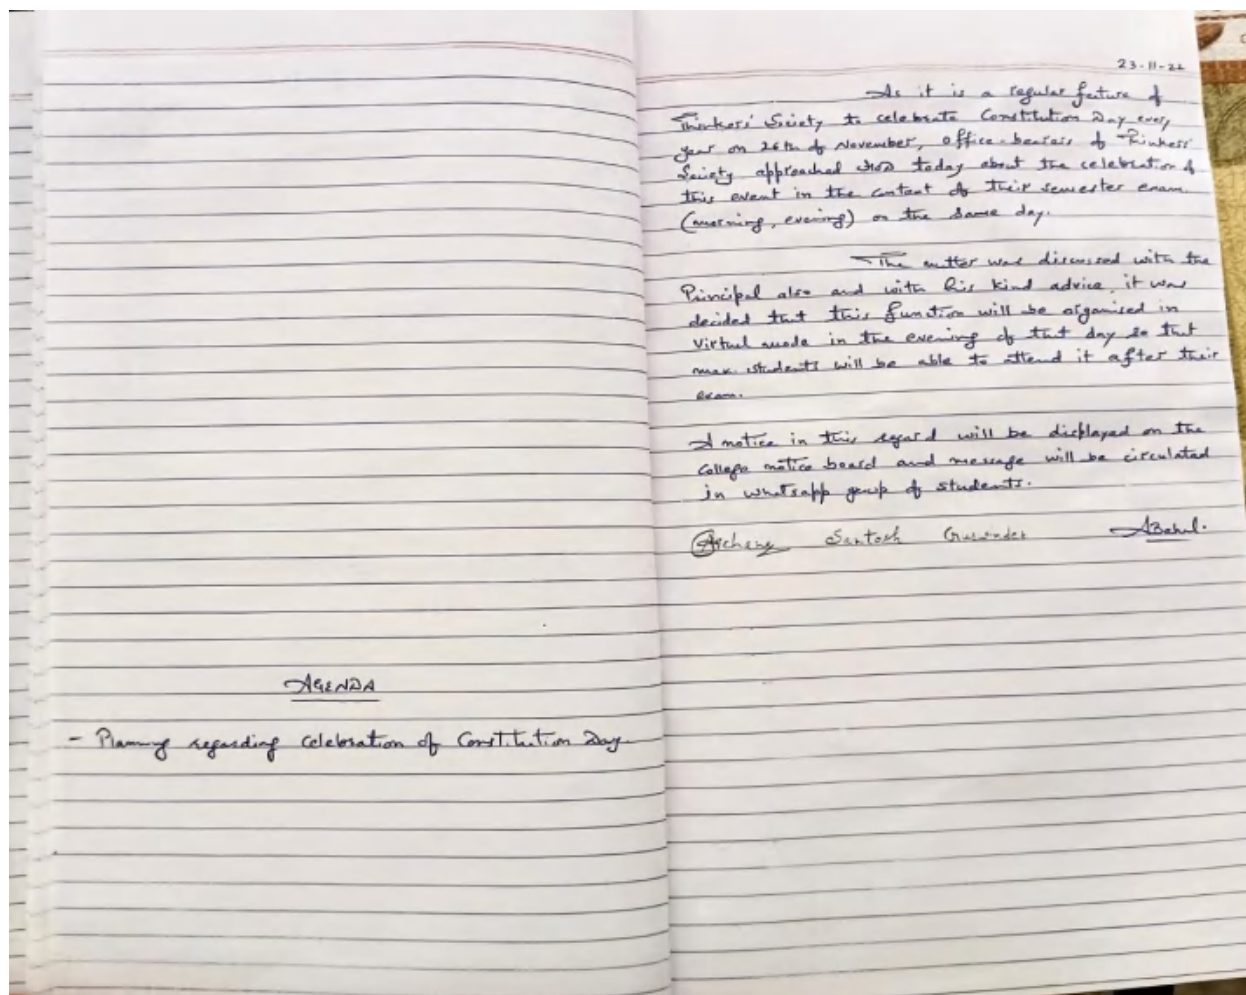 AGENDA
- Planning regarding celebration of Constitution Day
23-11-22
As it is a regular feature of
Thinkers' Society to celebrate Constitution Day every
year on 26th of November, office-bearers of Thinkers'
Society approached HOD today about the celebration of
this event in the context of their semester exam
(morning, evening) on the same day.
The matter was discussed with the
Principal also and with his kind advice, it was
decided that this function will be organised in
Virtual mode in the evening of that day so that
max. students will be able to attend it after their
exam.
A notice in this regard will be displayed on the
College notice board and message will be circulated
in whatsapp group of students.
Santosh